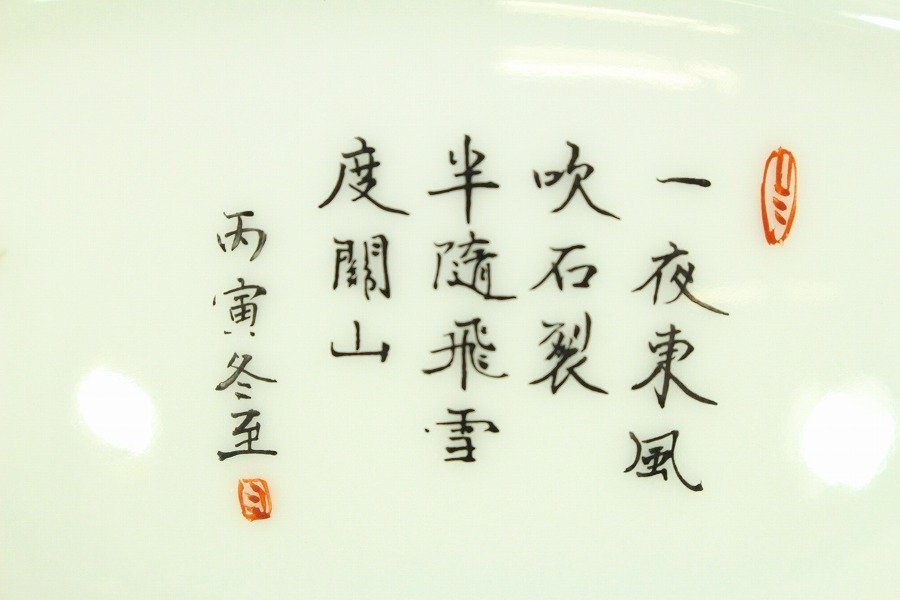 一夜東風
吹石裂
半隨飛雪
度關山
丙寅冬至